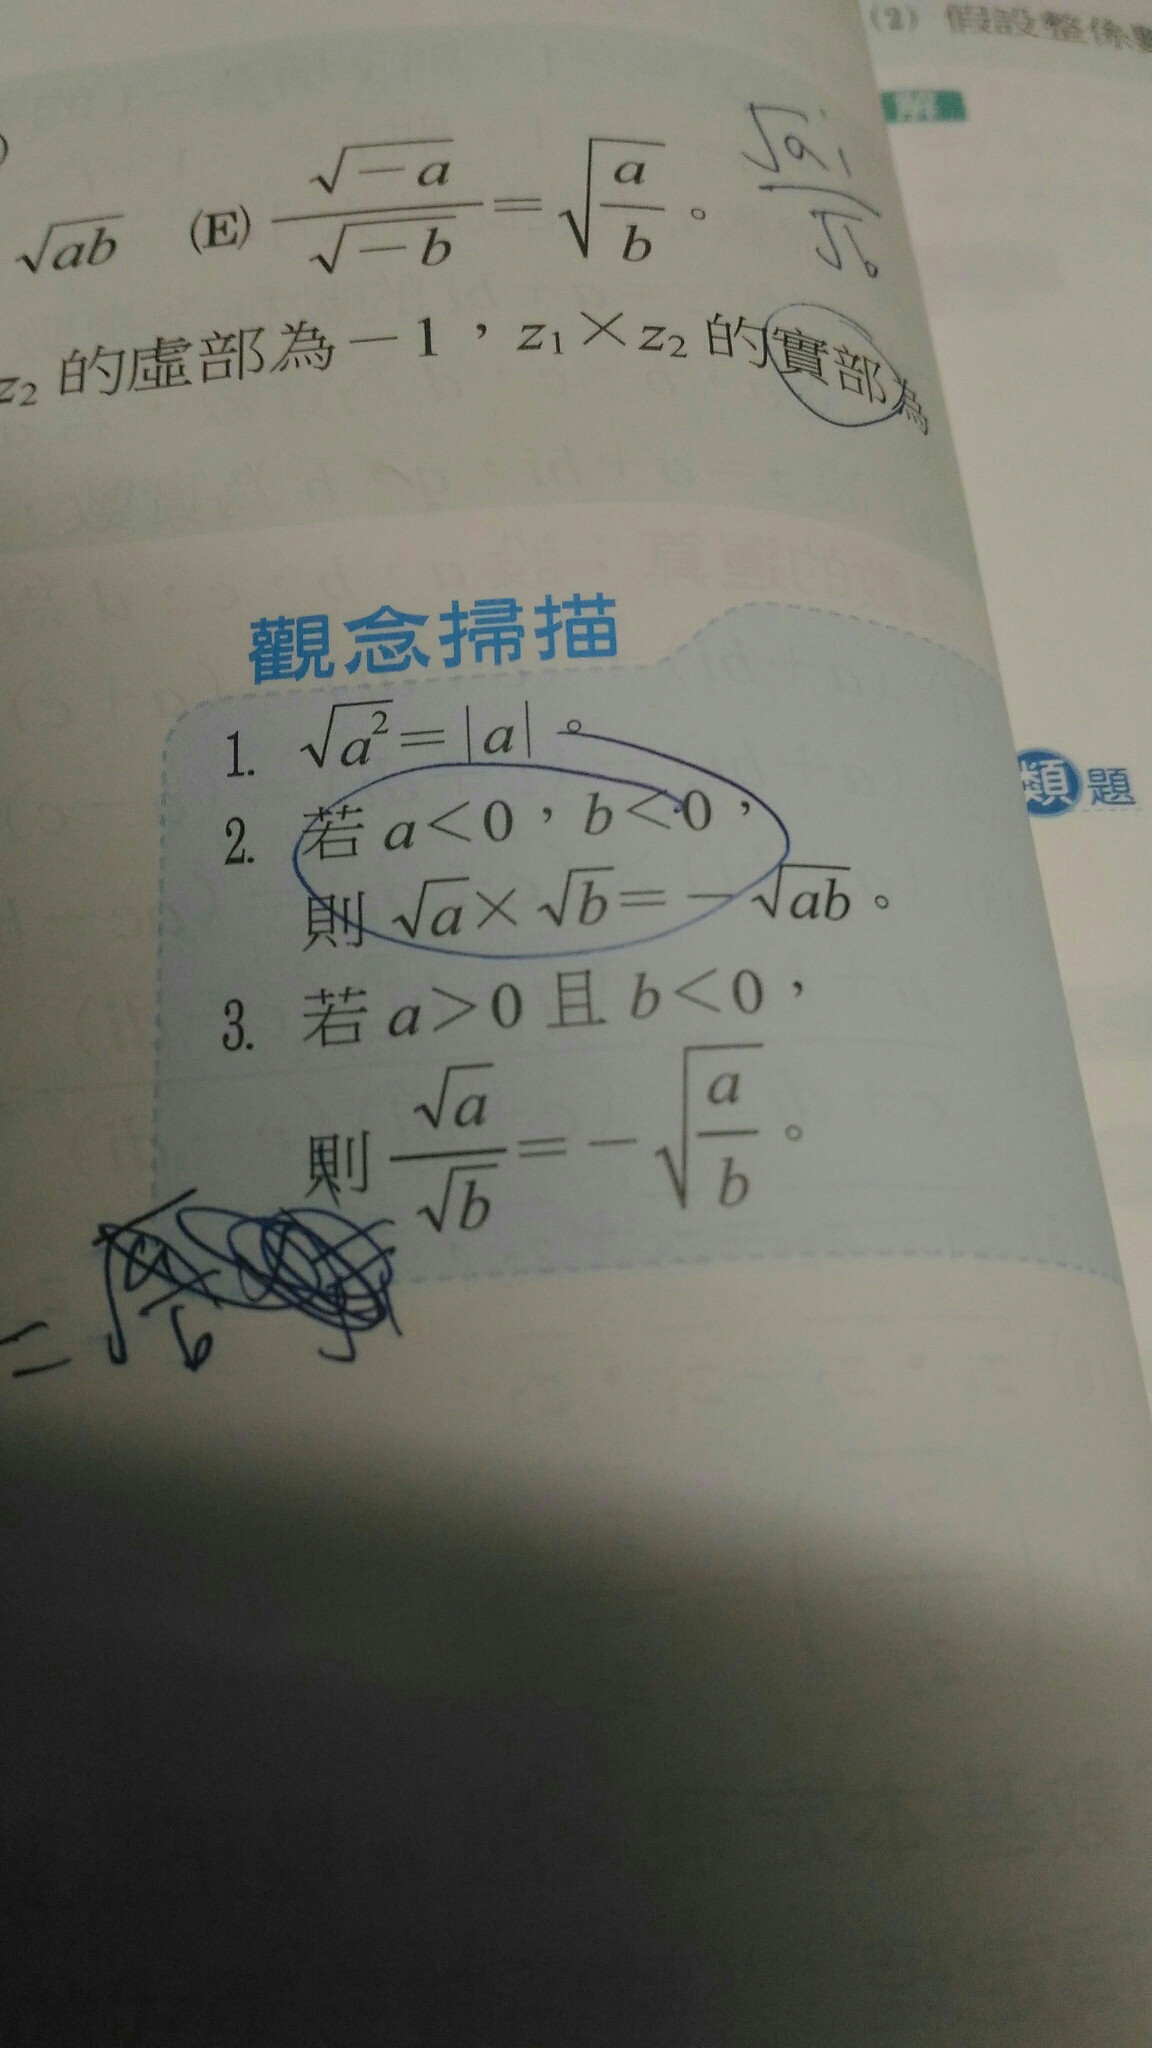 (2) 假設整係
解
√ab (E) √−a/√−b = √(a/b)。
√a i/√b
z₂ 的虛部為−1，z₁×z₂ 的實部為
觀念掃描
1. √a² = |a|。
2. 若 a<0，b<0，
則 √a × √b = −√ab。
類題
3. 若 a>0 且 b<0，
則 √a/√b = −√(a/b)。
=